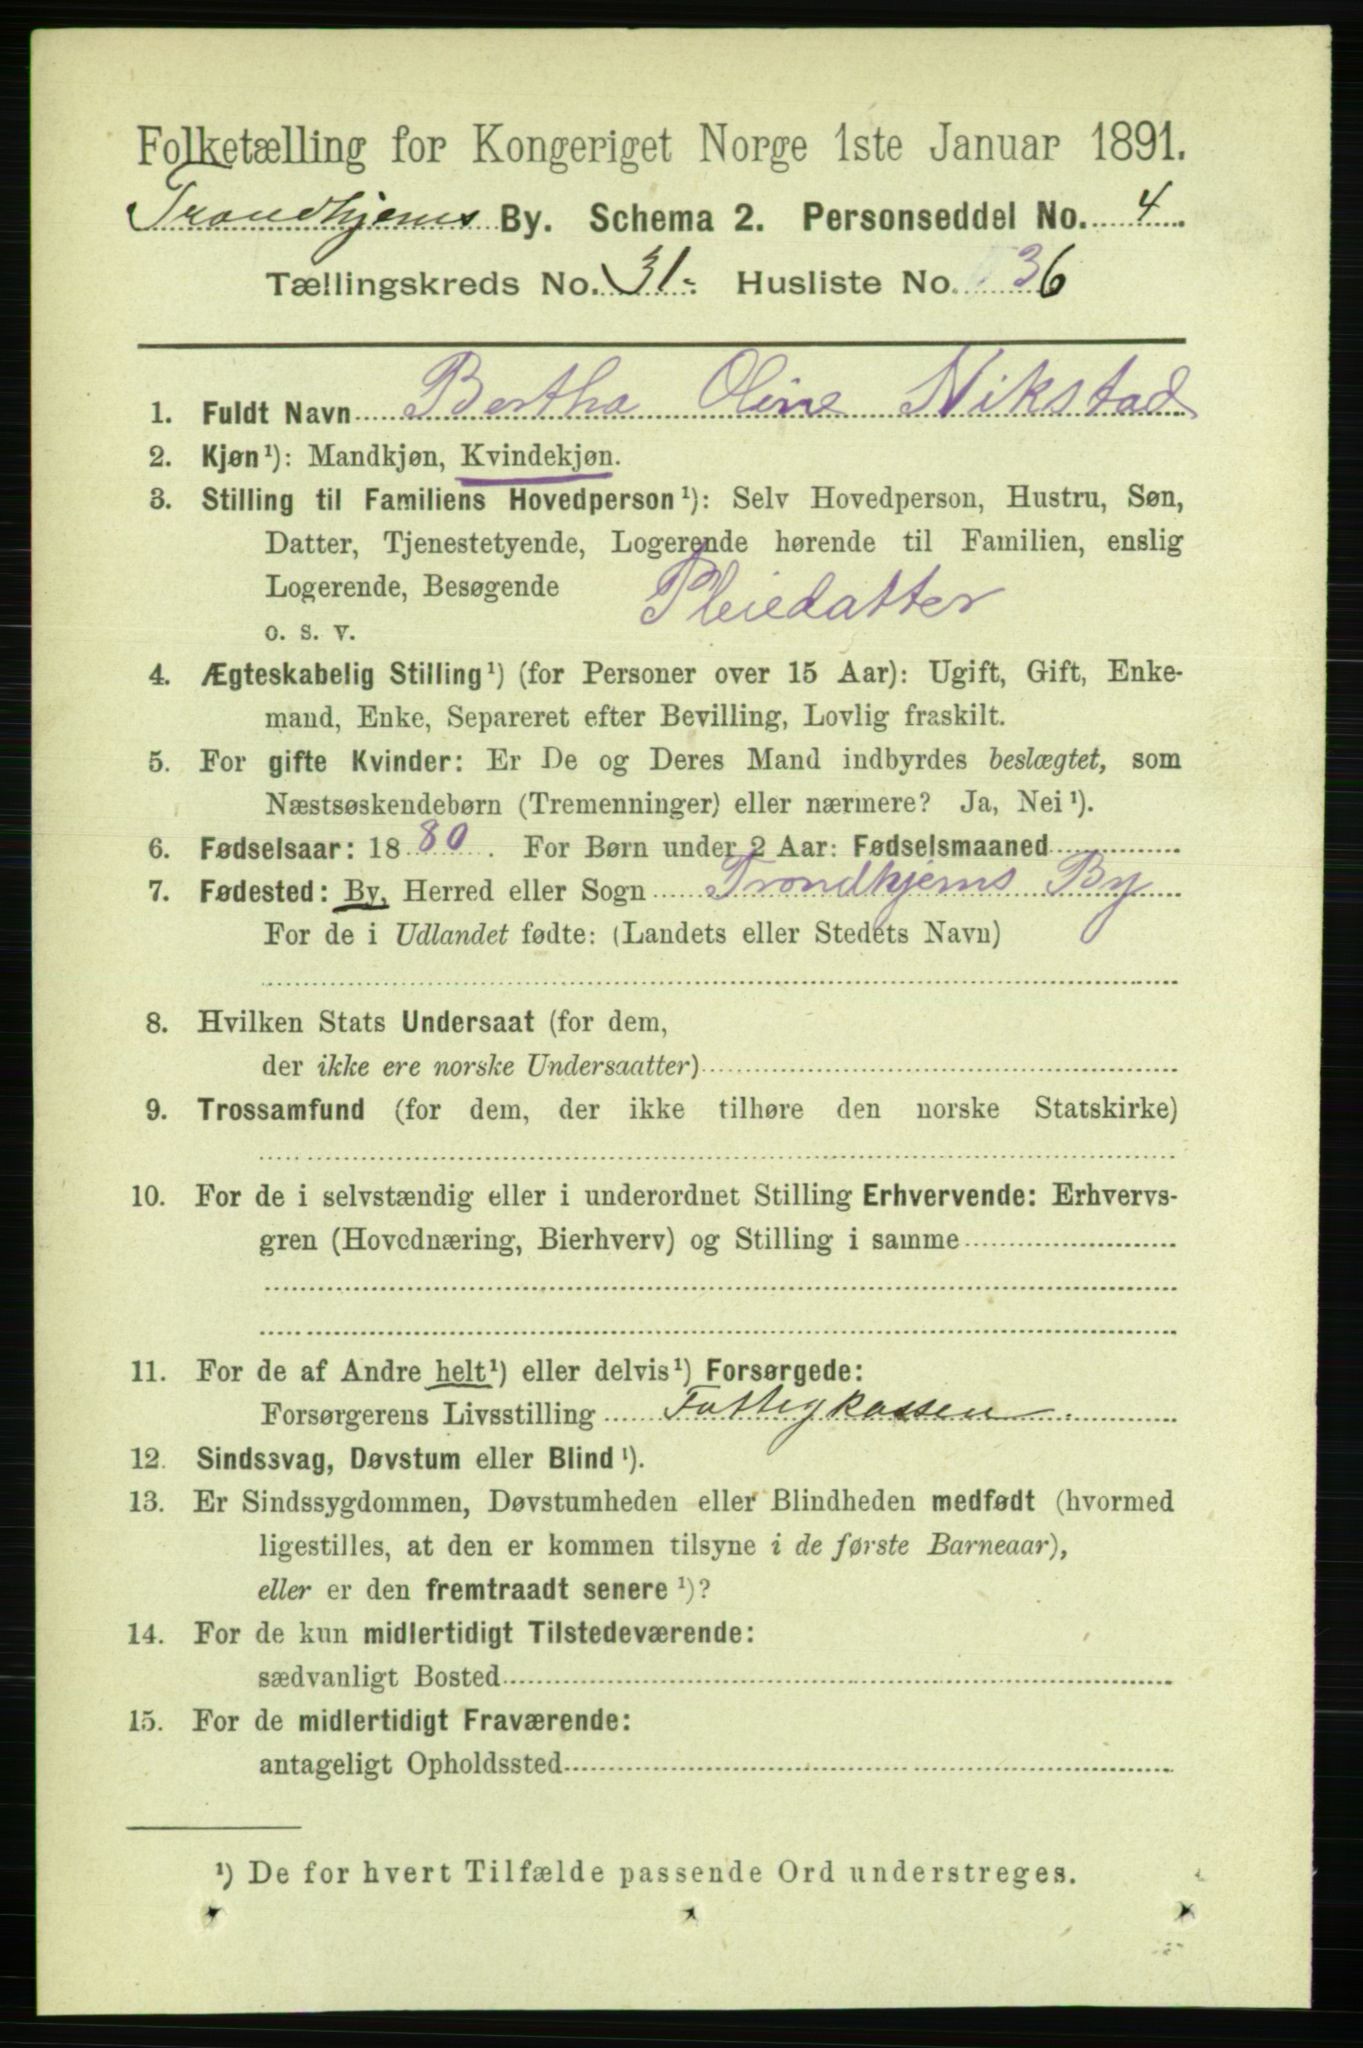 Folketælling for Kongeriget Norge 1ste Januar 1891.
Trondhjems By. Schema 2. Personseddel No. 4
Tællingskreds No. 31. Husliste No. 36
1. Fuldt Navn Bertha Oline Nikstad
2. Kjøn¹): Mandkjøn, Kvindekjøn.
3. Stilling til Familiens Hovedperson¹): Selv Hovedperson, Hustru, Søn,
Datter, Tjenestetyende, Logerende hørende til Familien, enslig
Logerende, Besøgende Pleiedatter
o. s. v.
4. Ægteskabelig Stilling¹) (for Personer over 15 Aar): Ugift, Gift, Enke-
mand, Enke, Separeret efter Bevilling, Lovlig fraskilt.
5. For gifte Kvinder: Er De og Deres Mand indbyrdes beslægtet, som
Næstsøskendebørn (Tremenninger) eller nærmere? Ja, Nei¹).
6. Fødselsaar: 1880. For Børn under 2 Aar: Fødselsmaaned
7. Fødested: By, Herred eller Sogn Trondhjems By
For de i Udlandet fødte: (Landets eller Stedets Navn)
8. Hvilken Stats Undersaat (for dem,
der ikke ere norske Undersaatter)
9. Trossamfund (for dem, der ikke tilhøre den norske Statskirke)
10. For de i selvstændig eller i underordnet Stilling Erhvervende: Erhvervs-
gren (Hovednæring, Bierhverv) og Stilling i samme
11. For de af Andre helt¹) eller delvis¹) Forsørgede:
Forsørgerens Livsstilling Fattigkassen
12. Sindssvag, Døvstum eller Blind¹).
13. Er Sindssygdommen, Døvstumheden eller Blindheden medfødt (hvormed
ligestilles, at den er kommen tilsyne i de første Barneaar),
eller er den fremtraadt senere¹)?
14. For de kun midlertidigt Tilstedeværende:
sædvanligt Bosted
15. For de midlertidigt Fraværende:
antageligt Opholdssted
¹) De for hvert Tilfælde passende Ord understreges.